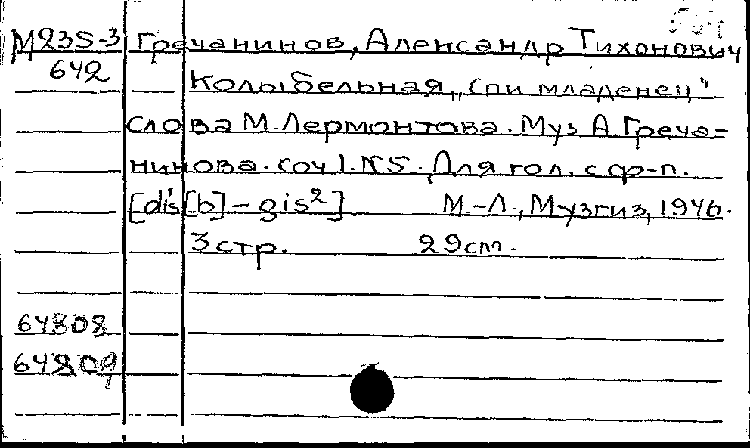 М235-3 Гречанинов, Александр Тихонович
642 Колыбельная „Спи младенец"
слова М. Лермонтова. Муз А. Греча-
нинова. соч 1. №5. Для гол. с ф-п.
[dis¹[b]-gis²] М.-Л., Музгиз, 1946.
3 стр. 29 cm.
64808
64809